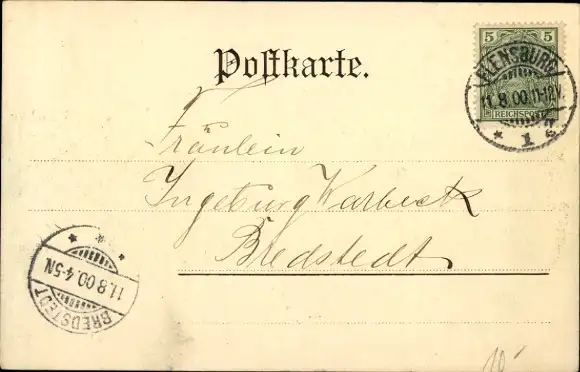 Postkarte.
5 5
REICHSPOST
FLENSBURG
11.8.00.11-12V.
* 1 c
Fräulein
Ingeburg Karbeck
Bredstedt
* * *
11.8.00.4-5N
BREDSTEDT
10